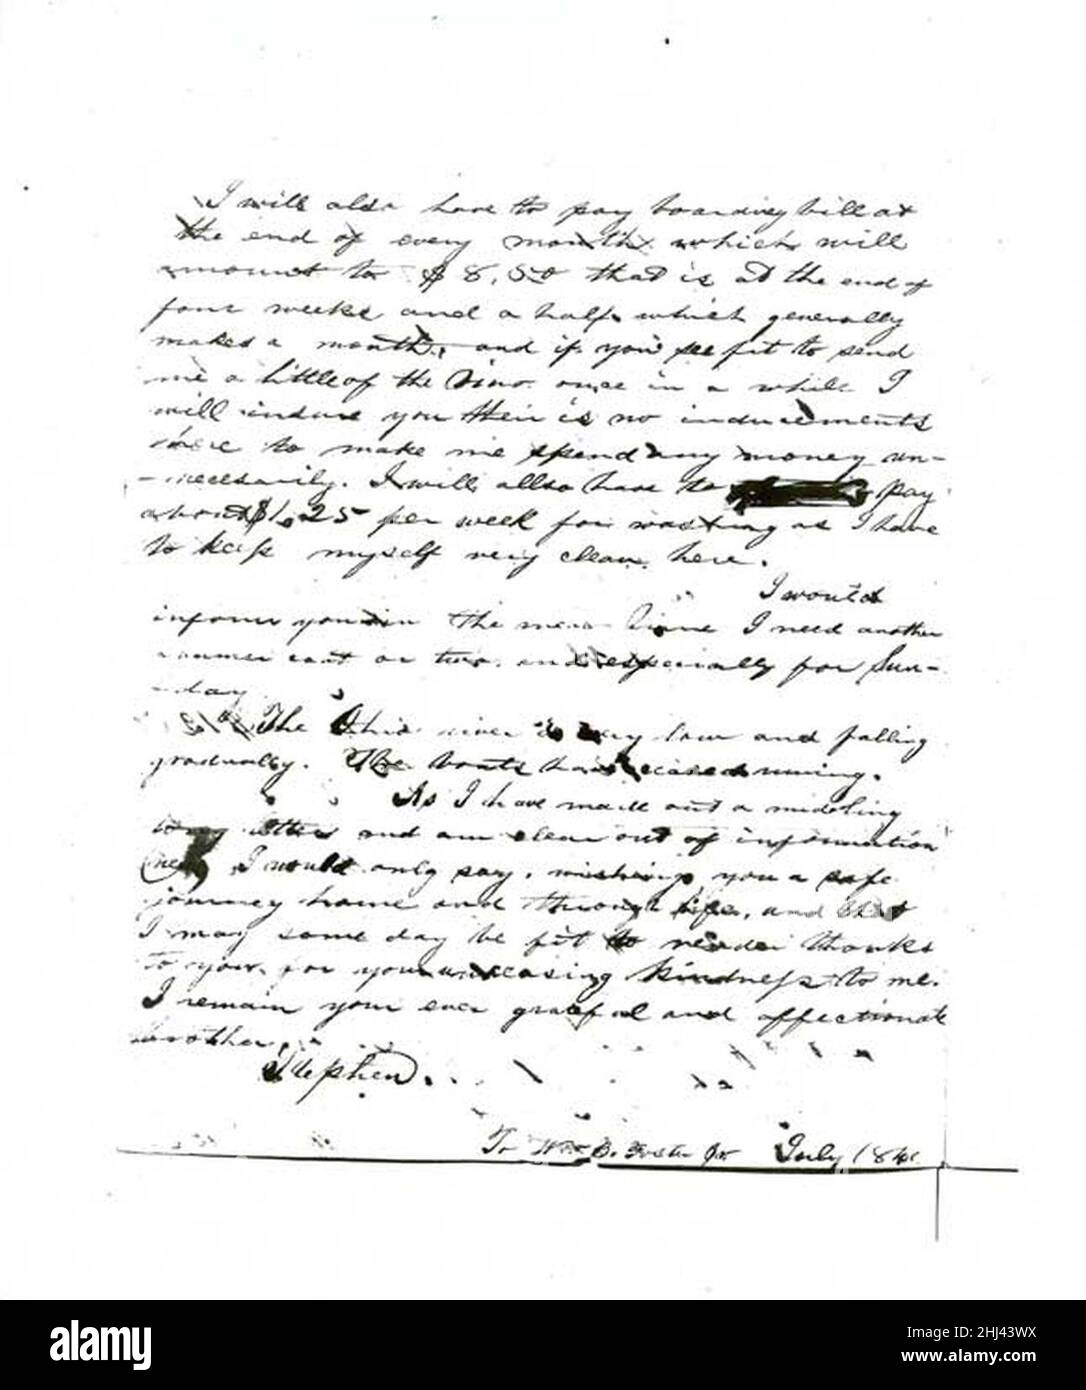 I will also have to pay boarding bill at
the end of every month which will
amount to $8,50 that is at the end of
four weeks and a half which generally
makes a month, and if you see fit to send
me a little of the Dino. once in a while I
will insure you their is no inducements
here to make me spend any money un-
-necessarily. I will allso have to pay
about $1,25 per week for washing as I have
to keep myself very clean here.
I would
inform you in the mean time I need another
summer coat or two. and especially for Sun-
-day.
The Ohio river is very low and falling
gradually. The boats have ceased running.
As I have made out a middling
long letter and am clear out of information
I would only say, wishing you a safe
journey home and through life, and that
I may some day be fit to render thanks
to you for your unceasing kindness to me.
I remain your ever grateful and affectionate
brother.
Stephen.
To Wm B. Foster Jr July 1841
alamy
Image ID: 2HJ43WX
www.alamy.com